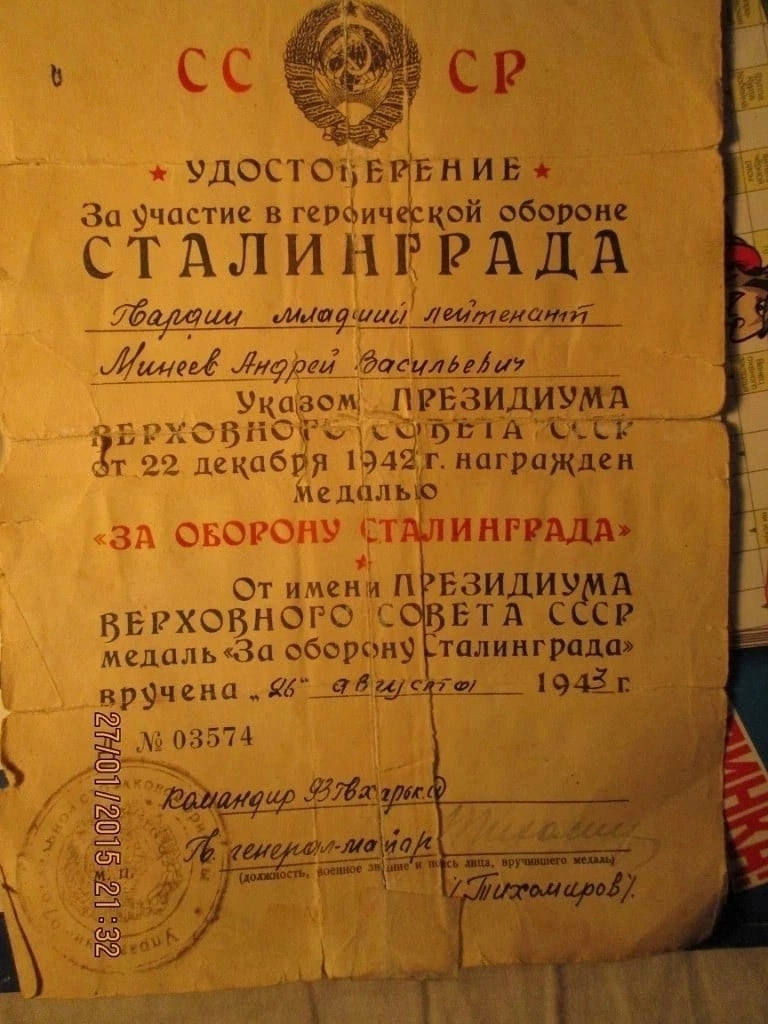 СССР
УДОСТОВЕРЕНИЕ
За участие в героической обороне
СТАЛИНГРАДА
Гвардии младший лейтенант
Минеев Андрей Васильевич
Указом ПРЕЗИДИУМА
ВЕРХОВНОГО СОВЕТА СССР
от 22 декабря 1942 г. награжден
медалью
«ЗА ОБОРОНУ СТАЛИНГРАДА»
От имени ПРЕЗИДИУМА
ВЕРХОВНОГО СОВЕТА СССР
медаль «За оборону Сталинграда»
вручена „26" августа 1943 г.
№ 03574
командир 93 Гв харьк сд
Гв. генерал-майор
(должность, военное звание и подпись лица, вручившего медаль)
М. П.
/Тихомиров/.
27/01/2015 21:32